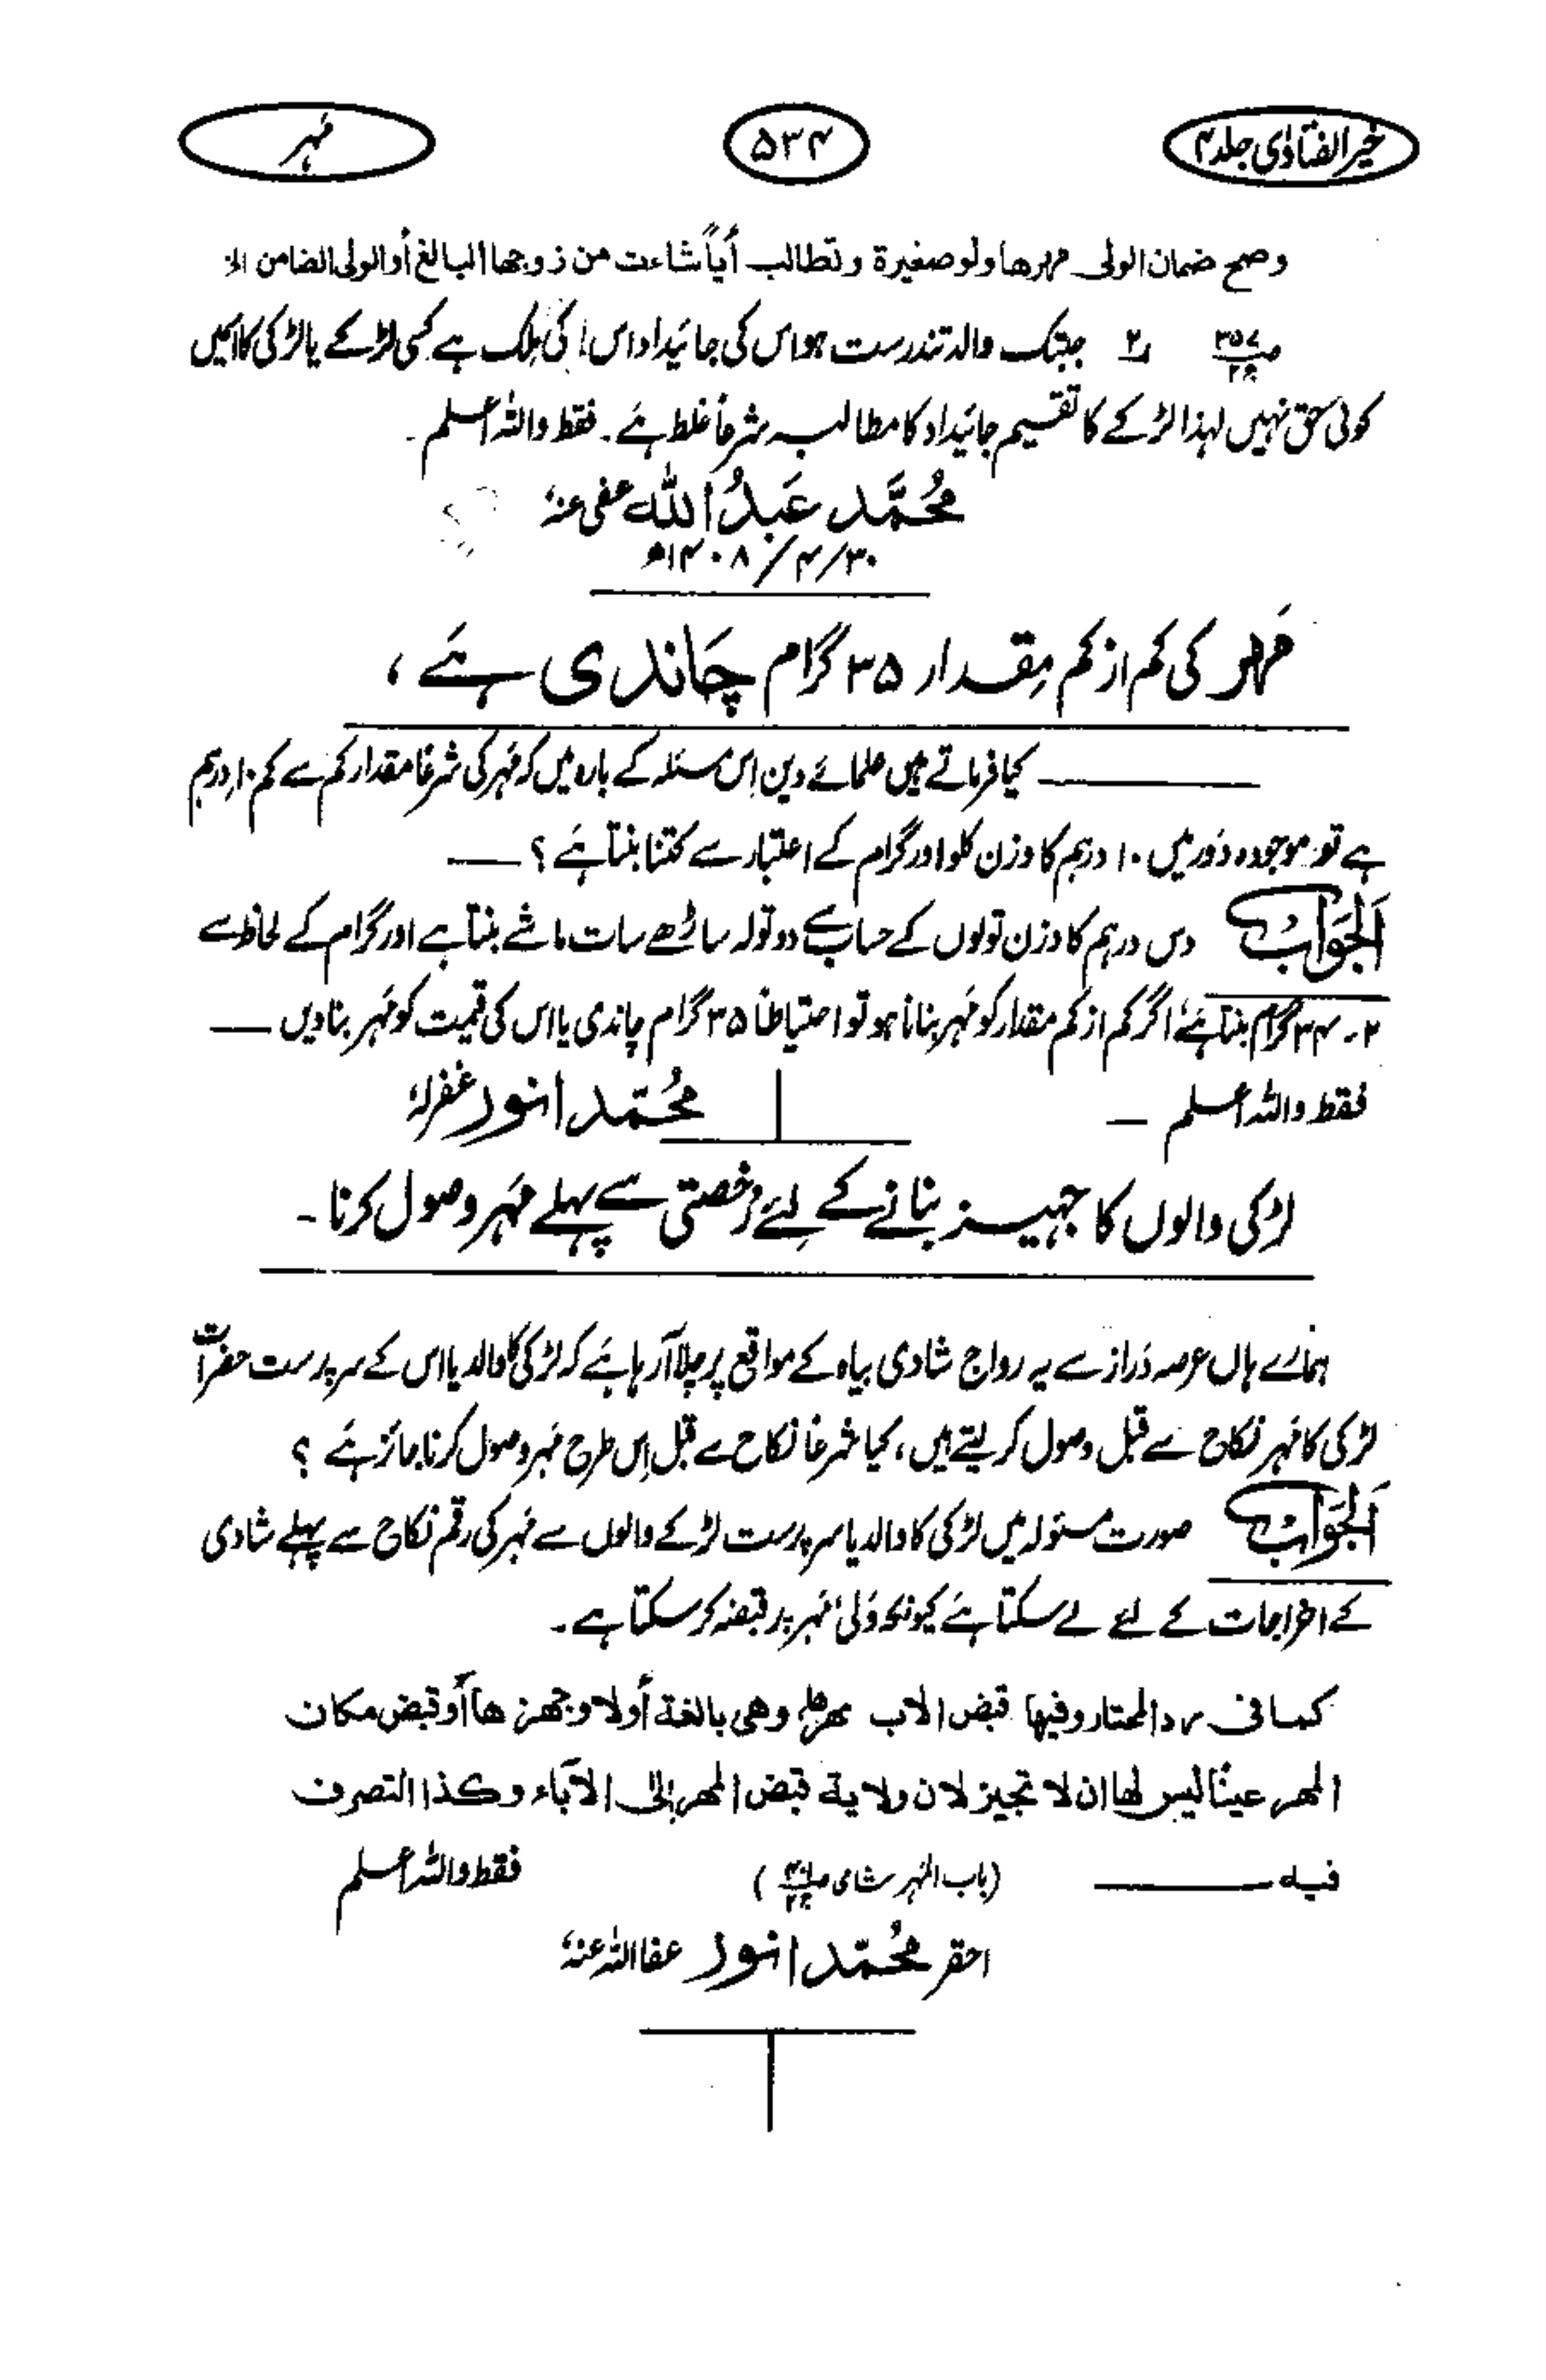 خیر الفتاوٰی جلد ۴
۵۳۴
مَہر
وصح ضمان الولی مهرها ولو صغيرة وتطالب أياً شاءت من زوجها البالغ أو الولی الضامن الخ
۲ جبتک والد تندرست ہو اس کی جائیداد اس کی مِلک ہے کسی لڑکے یا لڑکی کا اسمیں
کوئی حق نہیں لہذا لڑکے کا تقسیم جائیداد کا مطالبہ شرعاً غلط ہَے۔ فقط واللہ اعلم۔
مُحمَّد عَبدُ اللہ عفی عنہ
۳۰/۴/۱۴۰۸ھ
مَہر کی کم از کم مِقدار ۳۵ گرام چَاندی ہَے،
کیا فرماتے ہیں علمائے دین اِس مسئلہ کے بارہ میں کہ مَہر کی شرعًا مقدار کم سے کم ۱۰ درہم
ہے تو موجودہ دَور میں ۱۰ درہم کا وزن کلو اور گرام کے اعتبار سے کتنا بنتا ہَے ؟
اَلجَوَابُ دس درہم کا وزن تولوں کے حساب سے دو تولہ ساڑھے سات ماشے بنتا ہے اور گرام کے لحاظ سے
گرام بنتا ہَے، اگر کم از کم مقدار کو مَہر بنانا ہو تو احتیاطًا ۳۵ گرام چاندی یا اس کی قیمت کو مَہر بنا دیں
فقط واللہ اعلم ۔
مُحمّد انور غفرلہ
لڑکی والوں کا جہیز بنانے کے لِئے رُخصتی سے پہلے مَہر وصول کرنا ۔
ہمارے ہاں عرصہ دَراز سے یہ رواج شادی بیاہ کے مواقع پر چلا آ رہا ہَے کہ لڑکی کا والد یا اس کے سرپرست حضرات
لڑکی کا مَہر نکاح سے قبل وصول کر لیتے ہیں، کیا شرعًا نکاح سے قبل اِس طرح مَہر وصول کرنا جائز ہَے ؟
اَلجَوَابُ صورت مسئولہ میں لڑکی کا والد یا سرپرست لڑکے والوں سے مَہر کی رقم نکاح سے پہلے شادی
کے اخراجات کے لئے لے سکتا ہَے کیونکہ وَلی مَہر پر قبضہ کر سکتا ہے۔
کما فی رد المحتار وفيها قبض الاب مهرها وهی بالغة أولا وجهزها أو قبض مكان
المهر عينًا ليس لها ان لا تجيز لان ولاية قبض المهر الی الآباء وكذا التصرف
فيه
(باب المہر شامی)
فقط واللہ اعلم
احقر مُحمّد انور عفا اللہ عنہ